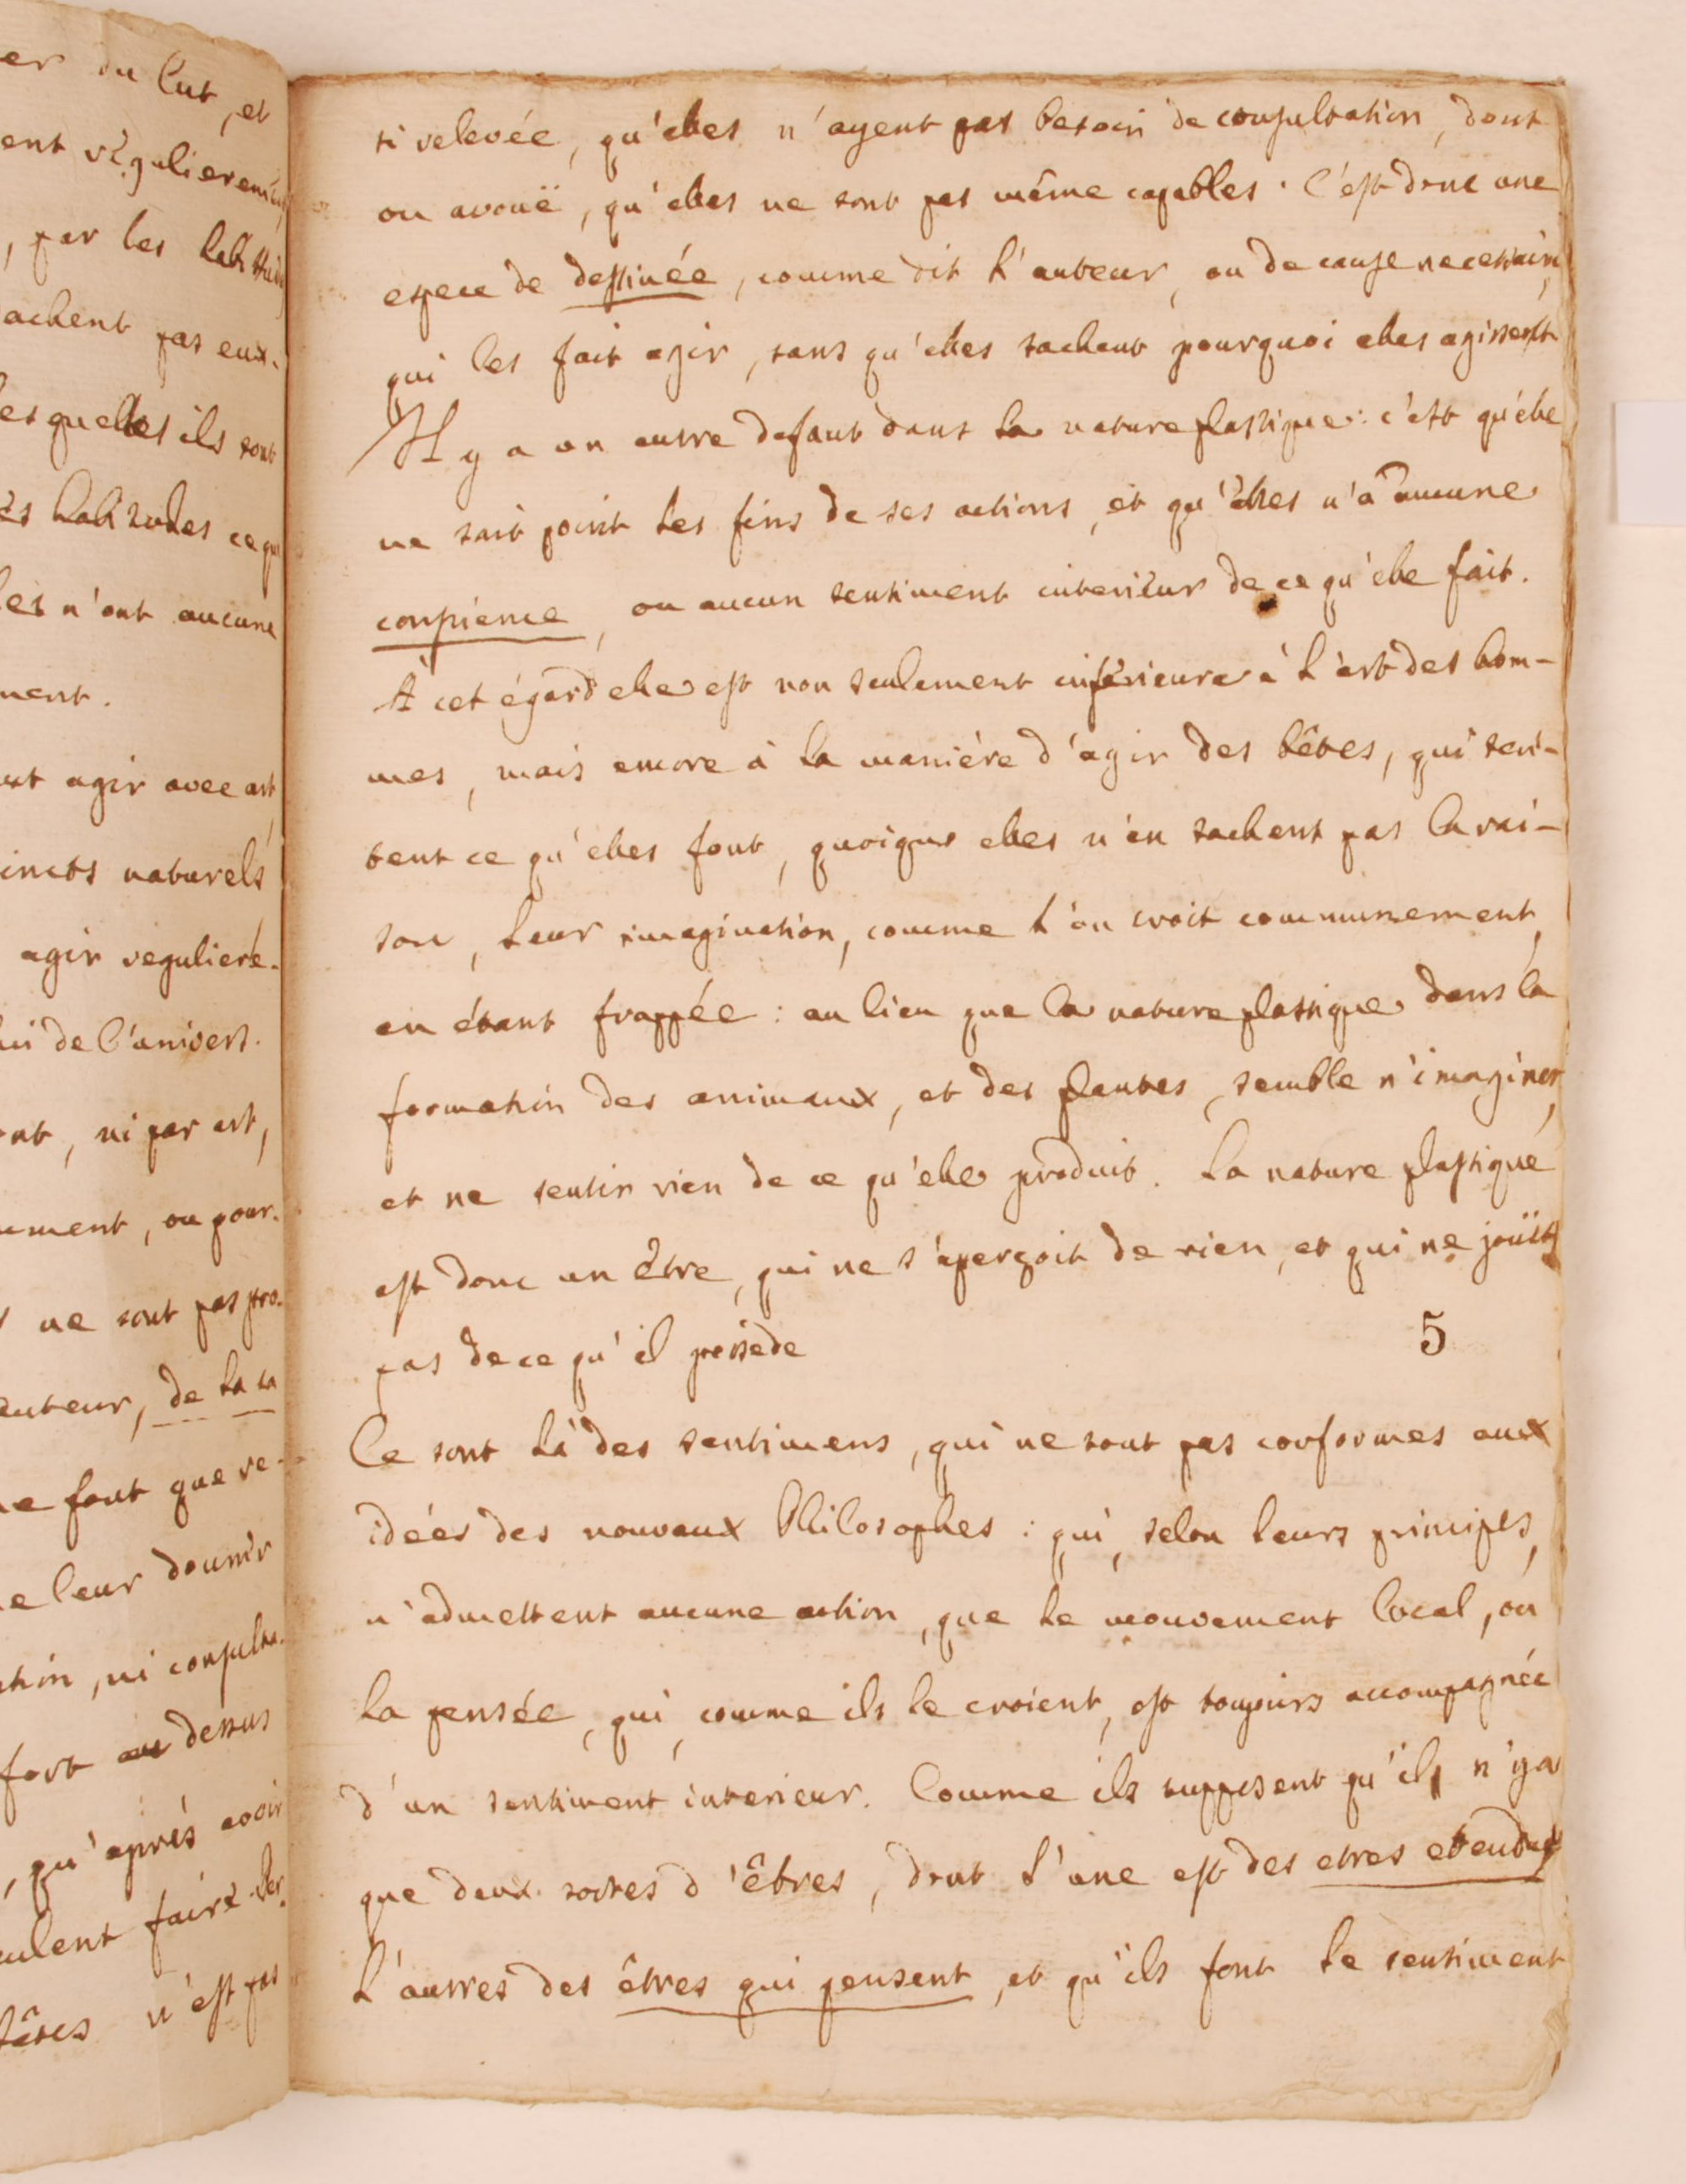 er du lut, et
ent régulierem̃t
, par les habitudes
achent pas eux-
esquelles ils sont
es habitudes ce qui
les n'ont aucune
ment.
agir avec art
incts naturels
agir reguliere-
lui de l'univers.
ont, ni par art,
ument, ou pour-
ne sont pas pro-
auteur, de la sa
ne font que re-
e leur dounir
tion, ni consulta-
fort au dessus
, qu'aprés avoir
eulent faire. Mer
bêtes n'est pas
si relevée, qu'elles n'ayent pas besoin de consultation, dont
on avouë, qu'elles ne sont pas même capables. C'est donc une
espece de destinée, comme dit l'auteur, ou de cause necessaire,
qui les fait agir, sans qu'elles sachent pourquoi elles agissent
Il y a un autre defaut dans la nature plastique: c'est qu'elle
ne sait point les fins de ses actions, et qu'elles n'a aucune
conscience, ou aucun sentiment interieur de ce qu'elle fait.
A cet égard elle est non seulement inférieure à l'art des hom-
mes, mais encore à la maniére d'agir des bêtes, qui sen-
tent ce qu'elles font, quoique elles n'en sachent pas la rai-
son, leur imagination, comme l'on croit communement,
en étant frappée: au lieu que la nature plastique dans la
formation des animaux, et des plantes, semble n'imaginer,
et ne sentir rien de ce qu'elle produit. La nature plastique
est donc un Être, qui ne s'aperçoit de rien, et qui ne jouït
pas de ce qu'il possede
5
Ce sont là des sentimens, qui ne sont pas conformes aux
idées des nouveaux Philosophes: qui, selon leurs principes,
n'admettent aucune action, que le mouvement local, ou
la pensée, qui, comme ils le croient, est toujours accompagnée
d'un sentiment interieur. Comme ils supposent qu'il n'y a
que deux sortes d'êtres, dont l'une est des etres etendus
l'autres des êtres qui pensent, et qu'ils font le sentiment